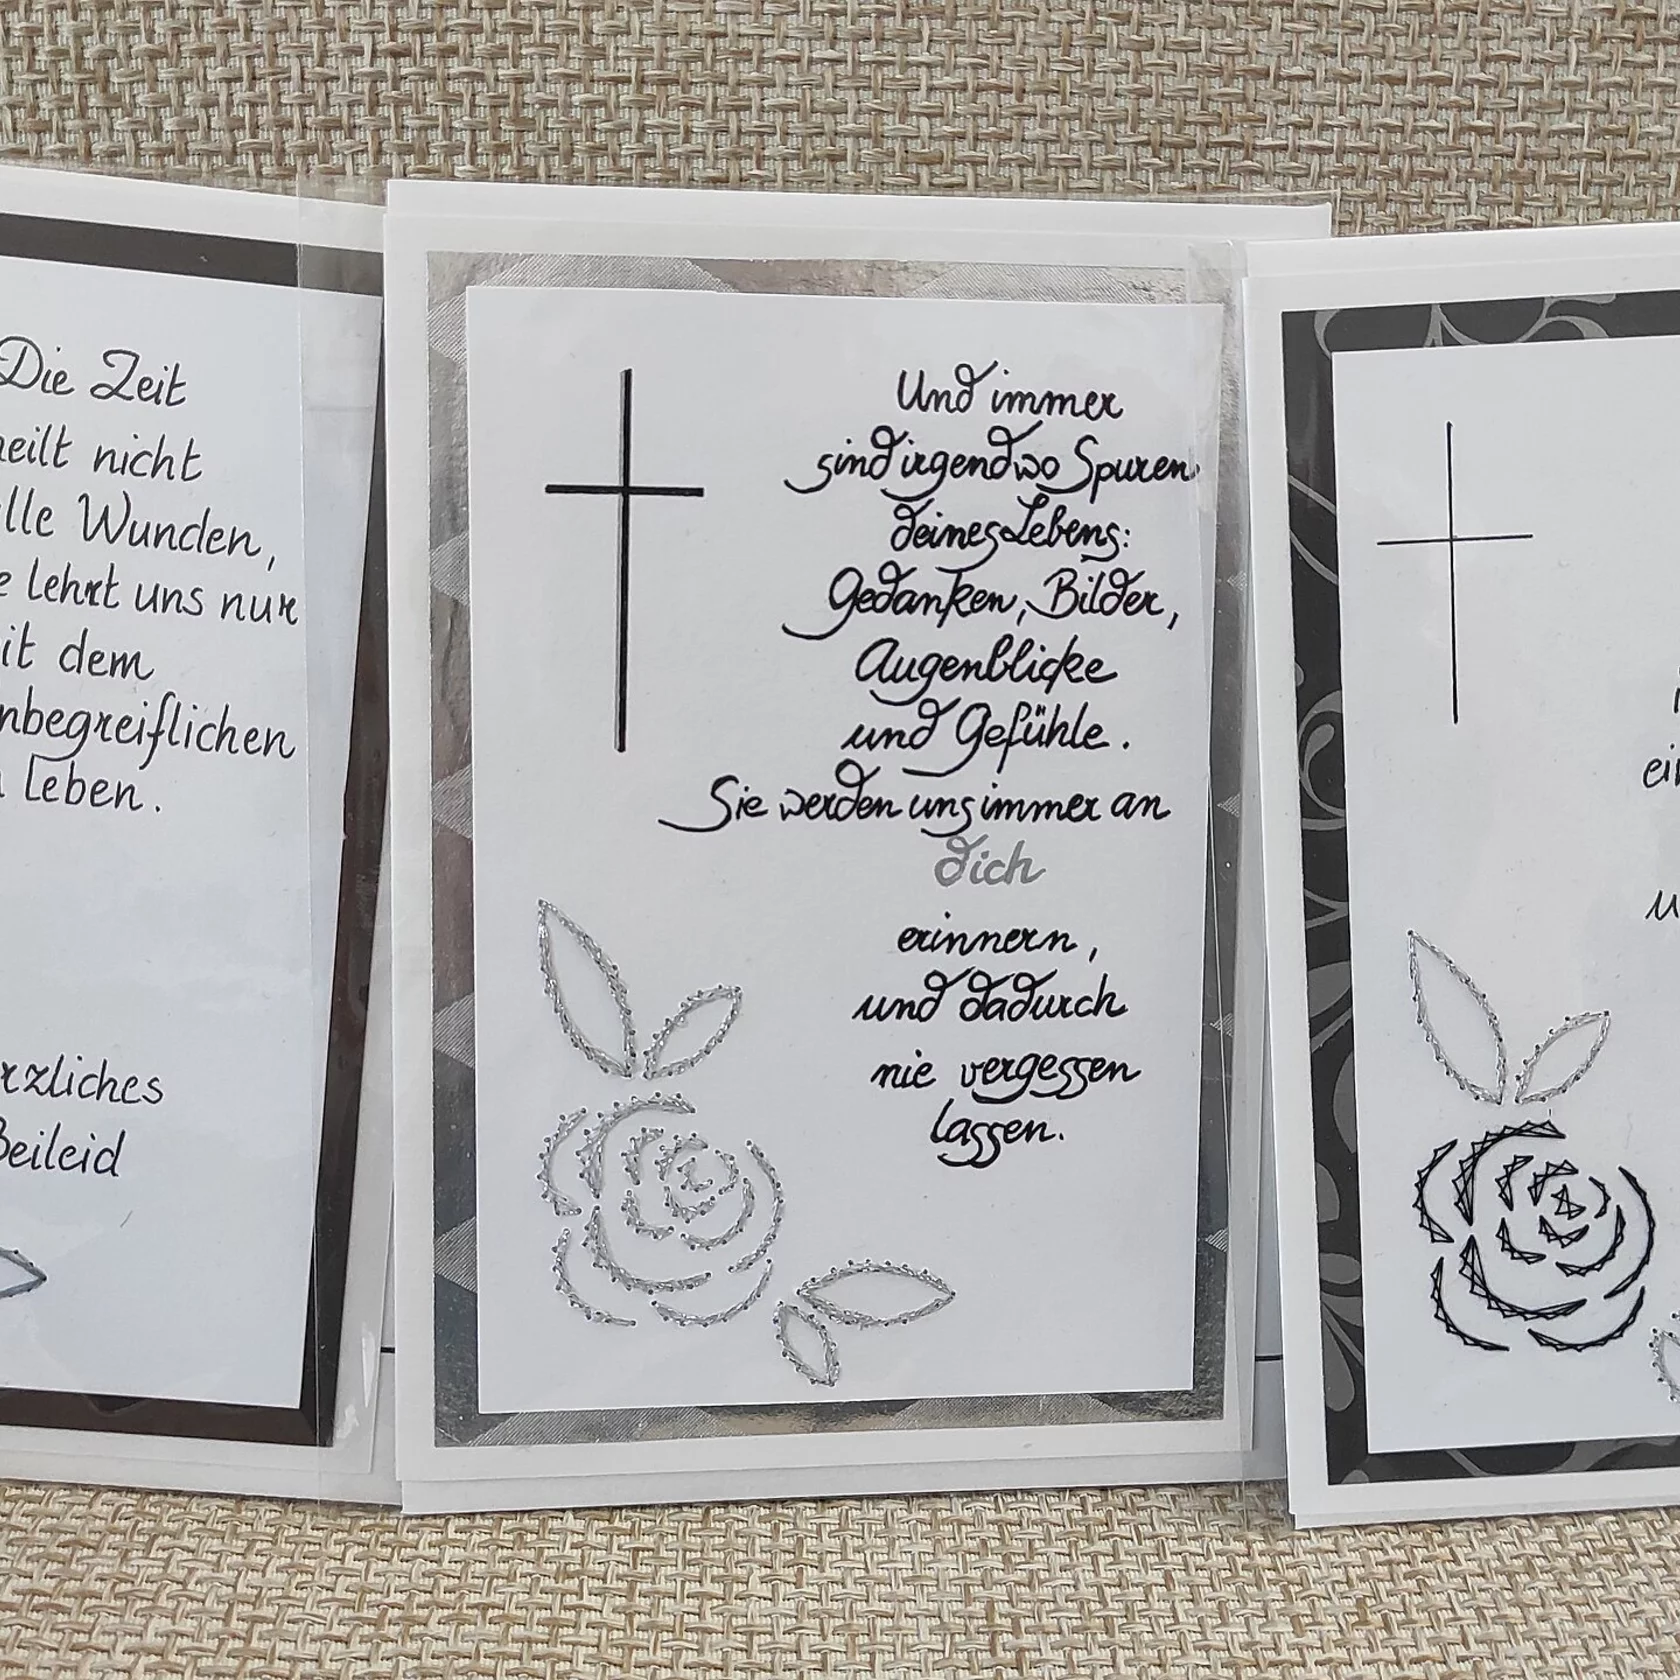 Die Zeit
heilt nicht
alle Wunden,
lehrt uns nur
mit dem
Unbegreiflichen
leben.
Herzliches
Beileid
Und immer
sind irgendwo Spuren
deines Lebens:
Gedanken, Bilder,
Augenblicke
und Gefühle.
Sie werden uns immer an
dich
erinnern,
und dadurch
nie vergessen
lassen.